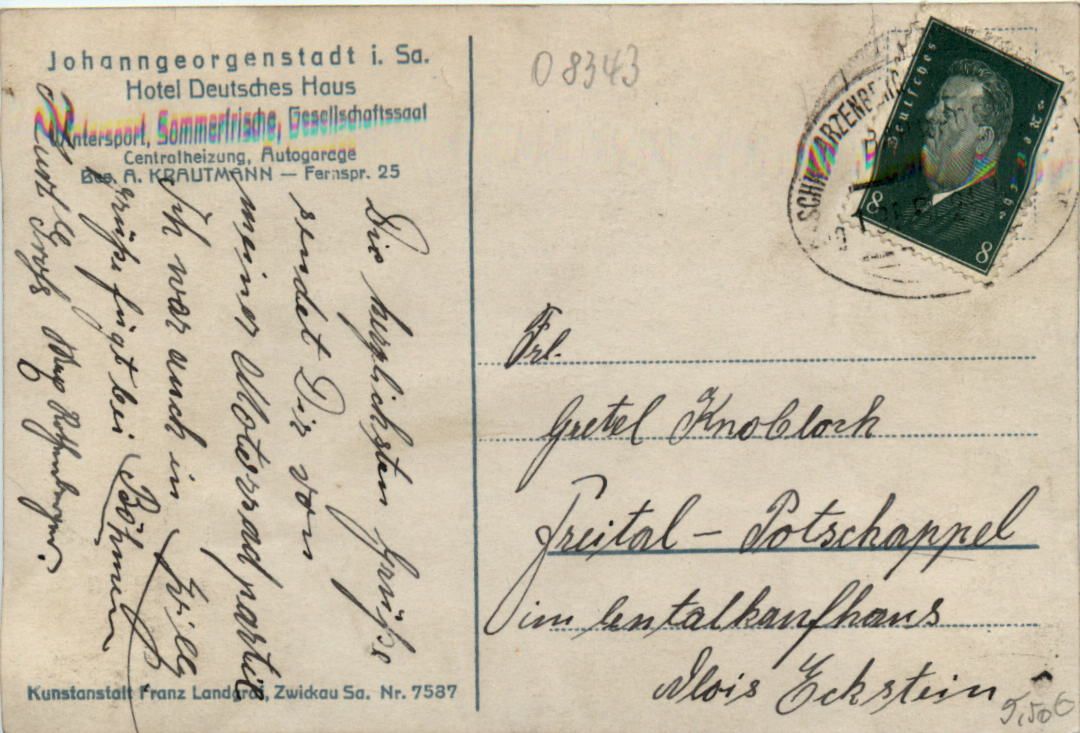 Johanngeorgenstadt i. Sa.
Hotel Deutsches Haus
Wintersport, Sommerfrische, Gesellschaftssaal
Centralheizung, Autogarage
Bes. A. KRAUTMANN — Fernspr. 25
Die herzlichsten Grüße
sendet Dir von
meiner Motorradpartie
Willy
Ich war auch in Böhmen
Grüße fügt bei
Kunstanstalt Franz Landgraf, Zwickau Sa. Nr. 7587
O 8343
SCHWARZENBERG
Deutsches Reich
8 8
Frl.
Gretel Knobloch
Freital - Potschappel
im Centalkaufhaus
Alois Eckstein
5,50€